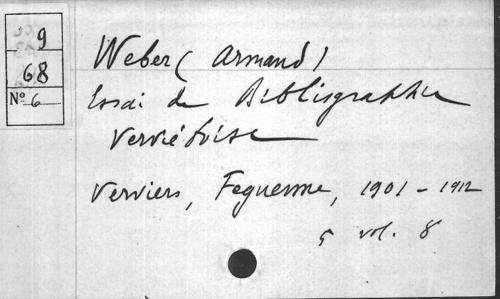 9
68
Nº 6
Weber (Armand)
Essai de Bibliographie
verviétoise
Verviers, Feguenne, 1901-1912
5 vol. 8